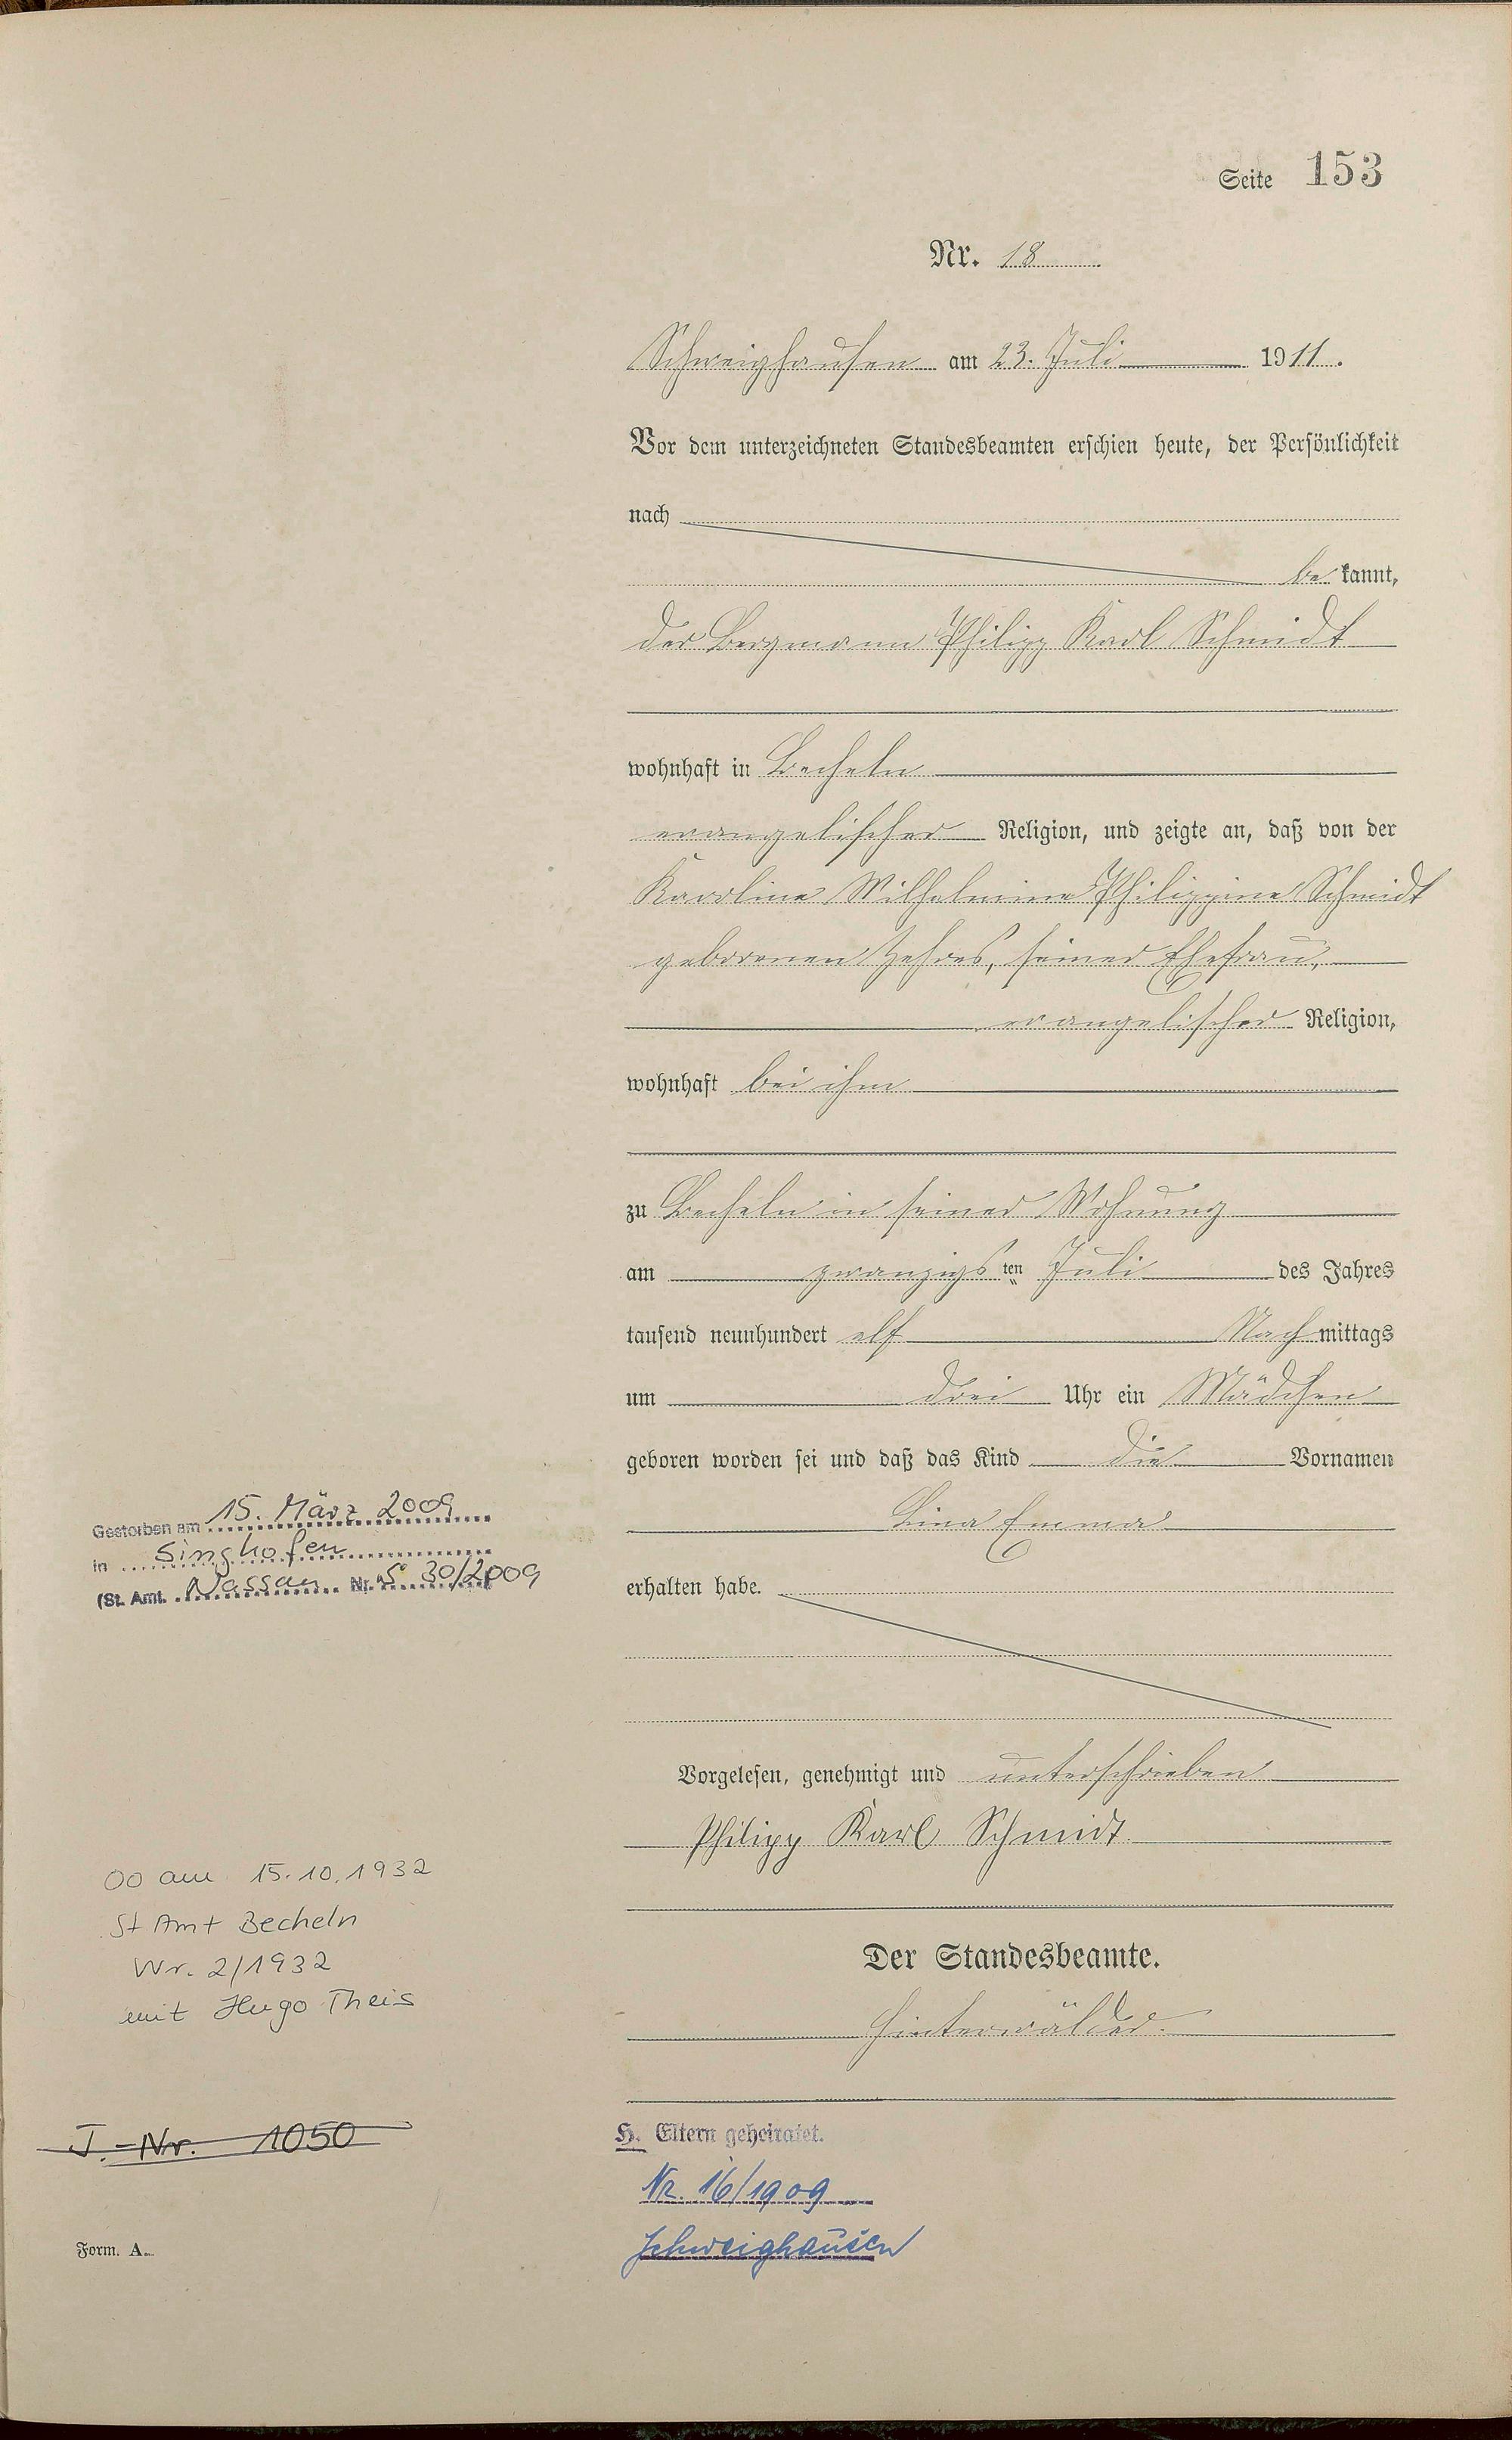 Seite 153
Nr. 18
Schweighausen am 23. Juli 1911.
Vor dem unterzeichneten Standesbeamten erschien heute, der Persönlichkeit
nach
be kannt,
der Bergmann Philipp Karl Schmidt
wohnhaft in Becheln
evangelischer Religion, und zeigte an, daß von der
Karoline Wilhelmine Philippine Schmidt
geborenen Zehres, seiner Ehefrau,
evangelischer Religion,
wohnhaft bei ihm
zu Becheln in seiner Wohnung
am zwanzigs ten Juli des Jahres
tausend neunhundert elf Nach mittags
um drei Uhr ein Mädchen
geboren worden sei und daß das Kind die Vornamen
Lina Emma
erhalten habe.
Vorgelesen, genehmigt und unterschrieben
Philipp Karl Schmidt
Der Standesbeamte.
Hinterwälder.
H. Eltern geheiratet.
Nr. 16/1909
Schweighausen
Gestorben am 15. März 2009
in Singhofen
(St. Amt. Nassau Nr. S 30/2009
OO am 15.10.1932
St Amt Becheln
Nr. 2/1932
mit Hugo Theis
J.-Nr. 1050
Form. A.